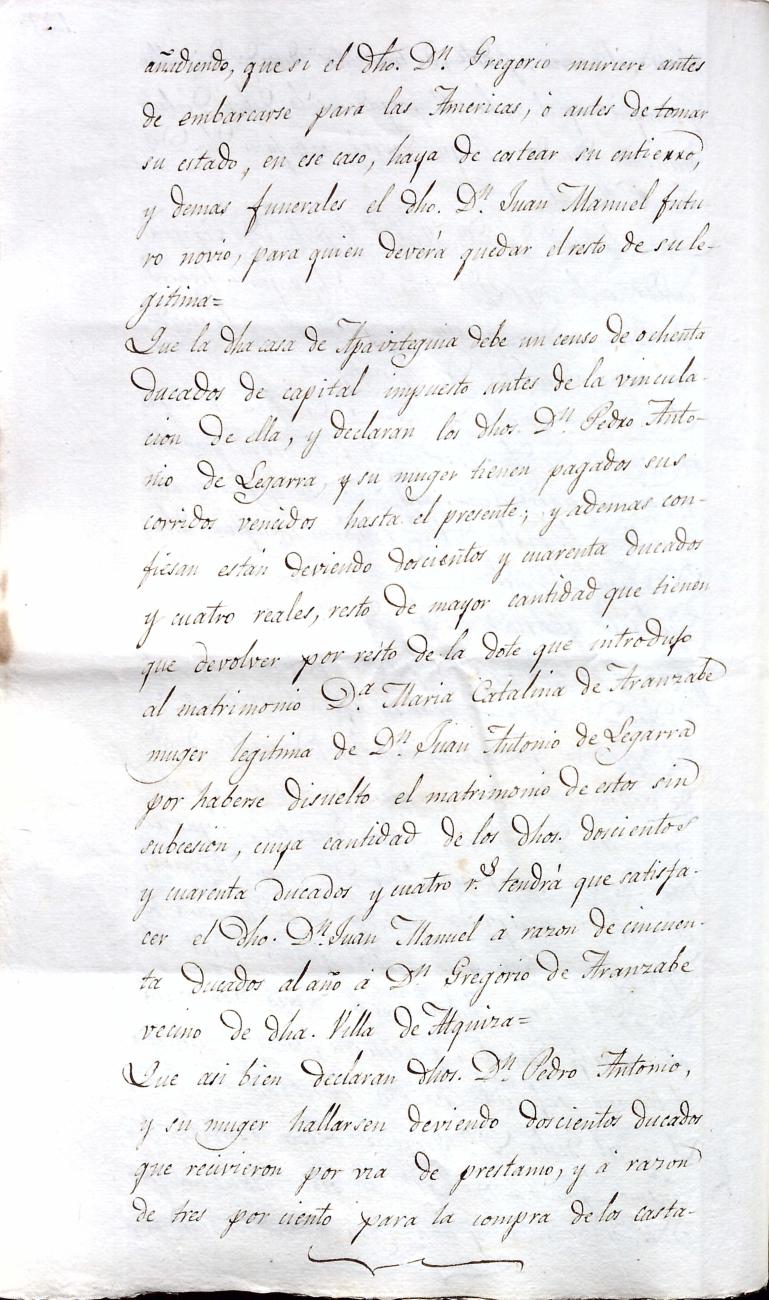 añadiendo, que si el dho. Dn. Gregorio muriere antes
de embarcarse para las Americas, ó antes de tomar
su estado, en ese caso, haya de costear su entierro,
y demas funerales el dho. Dn. Juan Manuel futu-
ro novio, para quien deverá quedar el resto de su le-
gitima=
Que la dha casa de Apaizteguia debe un censo de ochenta
ducados de capital impuesto antes de la vincula-
cion de ella, y declaran los dhos. Dn. Pedro Anto-
nio de Legarra, y su muger tienen pagados sus
corridos vencidos hasta el presente; y ademas con-
fiesan están deviendo doscientos y cuarenta ducados
y cuatro reales, resto de mayor cantidad que tienen
que devolver por resto de la dote que introdujo
al matrimonio Da. Maria Catalina de Aranzabe
muger legitima de Dn. Juan Antonio de Legarra
por haberse disuelto el matrimonio de estos sin
subcesion, cuya cantidad de los dhos. doscientos
y cuarenta ducados y cuatro rs. tendrá que satisfa-
cer el dho. Dn. Juan Manuel á razon de cincuen-
ta ducados al año á Dn. Gregorio de Aranzabe
vecino de dha. Villa de Alquiza=
Que asi bien declaran dhos. Dn. Pedro Antonio,
y su muger hallarsen deviendo doscientos ducados
que recivieron por via de prestamo, y á razon
de tres por ciento para la compra de los casta-